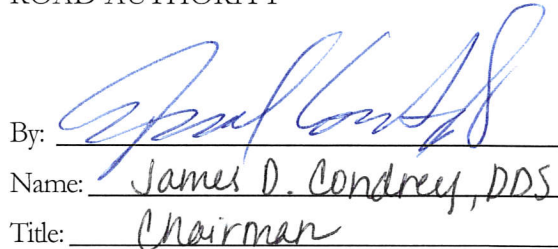 ROAD AUTHORITY
By:
Name: James D. Condrey, DDS
Title: Chairman